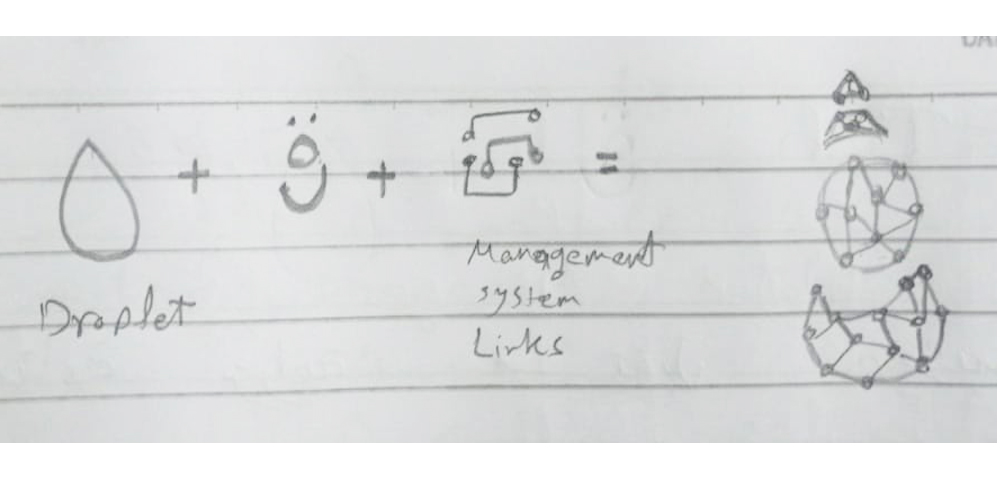 + ق + =
Droplet
Management
system
Links